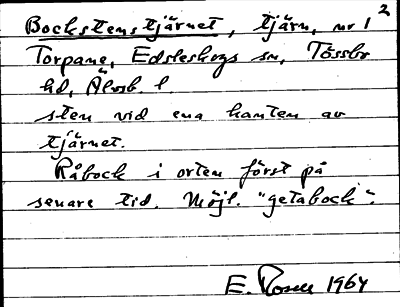 2
Bockstenstjärnet, tjärn, nr 1
Torpane, Edsleskogs sn, Tössbo
hd, Älvsb. l.
sten vid ena kanten av
tjärnet.
Råbock i orten först på
senare tid. Möjl. "getabock".
E. Rosell 1964